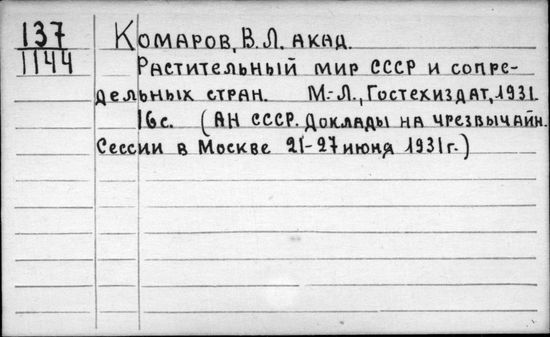 137
1144
Комаров, В.Л. акад.
Растительный мир СССР и сопре-
дельных стран. М.-Л., Гостехиздат, 1931.
16с. (АН СССР. Доклады на чрезвычайн.
Сессии в Москве 21-27 июня 1931г.)